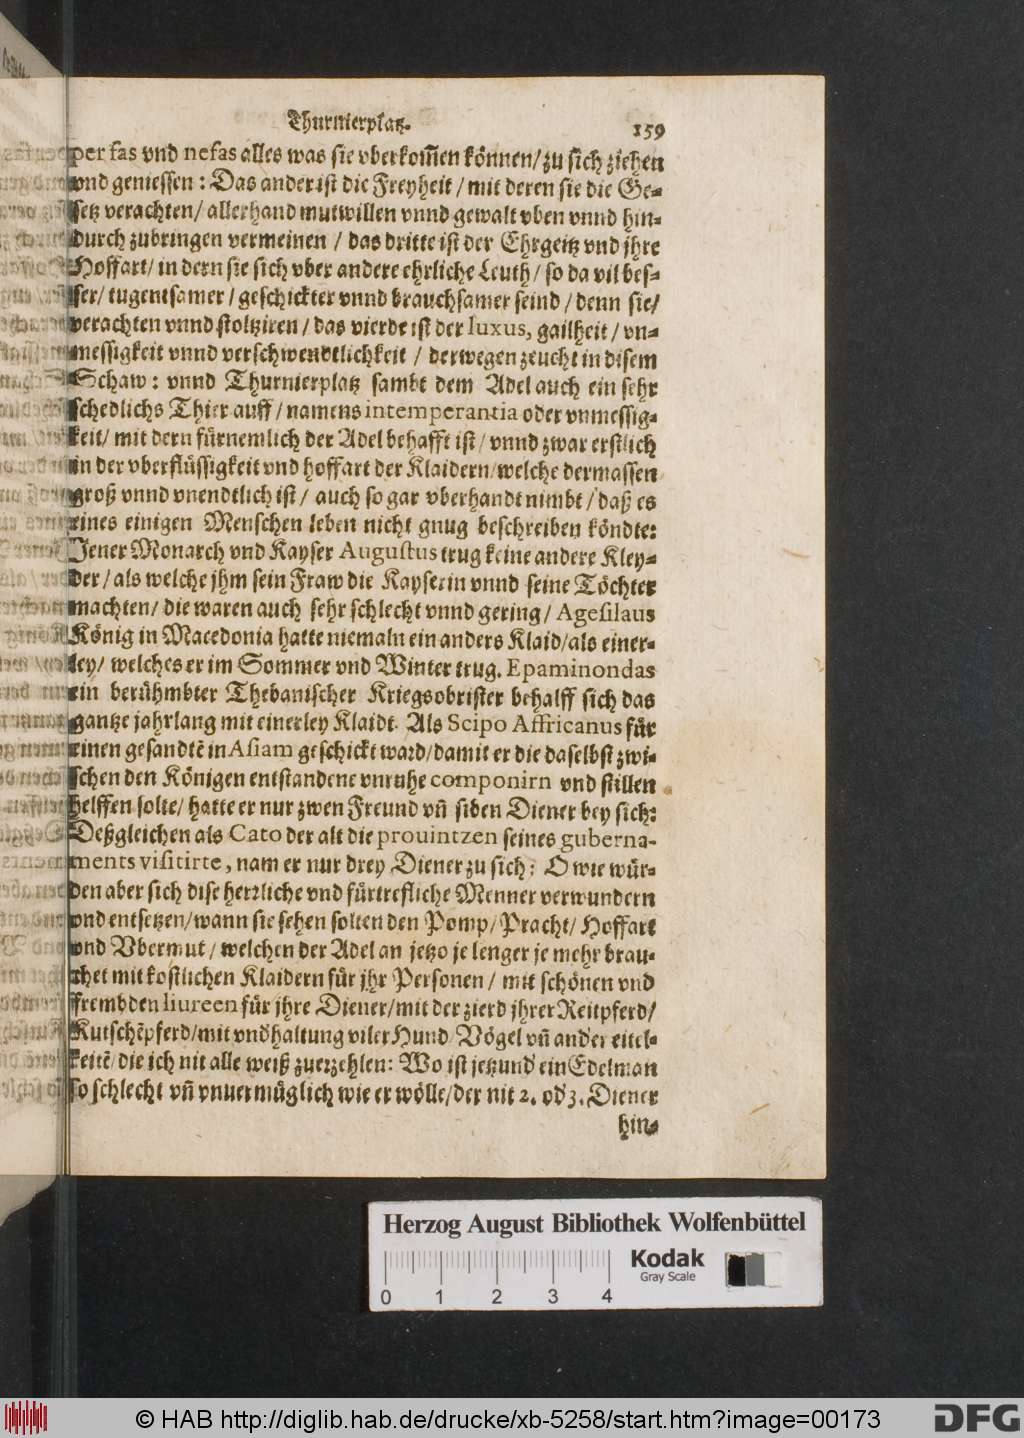 Thurnierplatz. 159
per fas vnd nefas alles was sie vberkom̃en können/ zu sich ziehen
vnd geniessen: Das ander ist die Freyheit/ mit deren sie die Ge-
setz verachten/ allerhand mutwillen vnnd gewalt vben vnnd hin-
durch zubringen vermeinen/ das dritte ist der Ehrgeitz vnd jhre
Hoffart/ in dern sie sich vber andere ehrliche Leuth/ so da vil bes-
ser/ tugentsamer/ geschickter vnnd brauchsamer seind/ denn sie/
verachten vnnd stoltziren/ das vierde ist der luxus, gailheit/ vn-
messigkeit vnnd verschwendtlichkeit/ derwegen zeucht in disem
Schaw: vnnd Thurnierplatz sambt dem Adel auch ein sehr
schedlichs Thier auff/ namens intemperantia oder vnmessig-
keit/ mit dern fürnemlich der Adel behafft ist/ vnnd zwar erstlich
in der vberflüssigkeit vnd hoffart der Klaidern/ welche dermassen
groß vnnd vnendtlich ist/ auch so gar vberhandt nimbt/ daß es
eines einigen Menschen leben nicht gnug beschreiben köndte:
Jener Monarch vnd Kayser Augustus trug keine andere Kley-
der/ als welche jhm sein Fraw die Kayserin vnnd seine Töchter
machten/ die waren auch sehr schlecht vnnd gering/ Agesilaus
König in Macedonia hatte niemaln ein anders Klaid/ als einer-
ley/ welches er im Sommer vnd Winter trug. Epaminondas
ein berühmbter Thebanischer Kriegsobrister behalff sich das
gantze jahr lang mit einerley Klaidt. Als Scipo Affricanus für
einen gesandtē in Asiam geschickt ward/ damit er die daselbst zwi-
schen den Königen entstandene vnruhe componirn vnd stillen
helffen solte/ hatte er nur zwen Freund vn̄ siben Diener bey sich:
Deßgleichen als Cato der alt die prouintzen seines guberna-
ments visitirte, nam er nur drey Diener zu sich; O wie wür-
den aber sich dise herrliche vnd fürtrefliche Menner verwundern
vnd entsetzen/ wann sie sehen solten den Pomp/ Pracht/ Hoffart
vnd Vbermut/ welchen der Adel an jetzo je lenger je mehr brau-
chet mit kostlichen Klaidern für jhr Personen/ mit schönen vnd
frembden liureen für jhre Diener/ mit der zierd jhrer Reitpferd/
Kutschēpferd/ mit vndhaltung viler Hund/ Vögel vn̄ ander eitel-
keitē/ die ich nit alle weiß zuerzehlen: Wo ist jetzund ein Edelman
so schlecht vn̄ vnuermüglich wie er wölle/ der nit 2. od 3. Diener
hin-
Herzog August Bibliothek Wolfenbüttel
Kodak
Gray Scale
0 1 2 3 4
© HAB http://diglib.hab.de/drucke/xb-5258/start.htm?image=00173
DFG